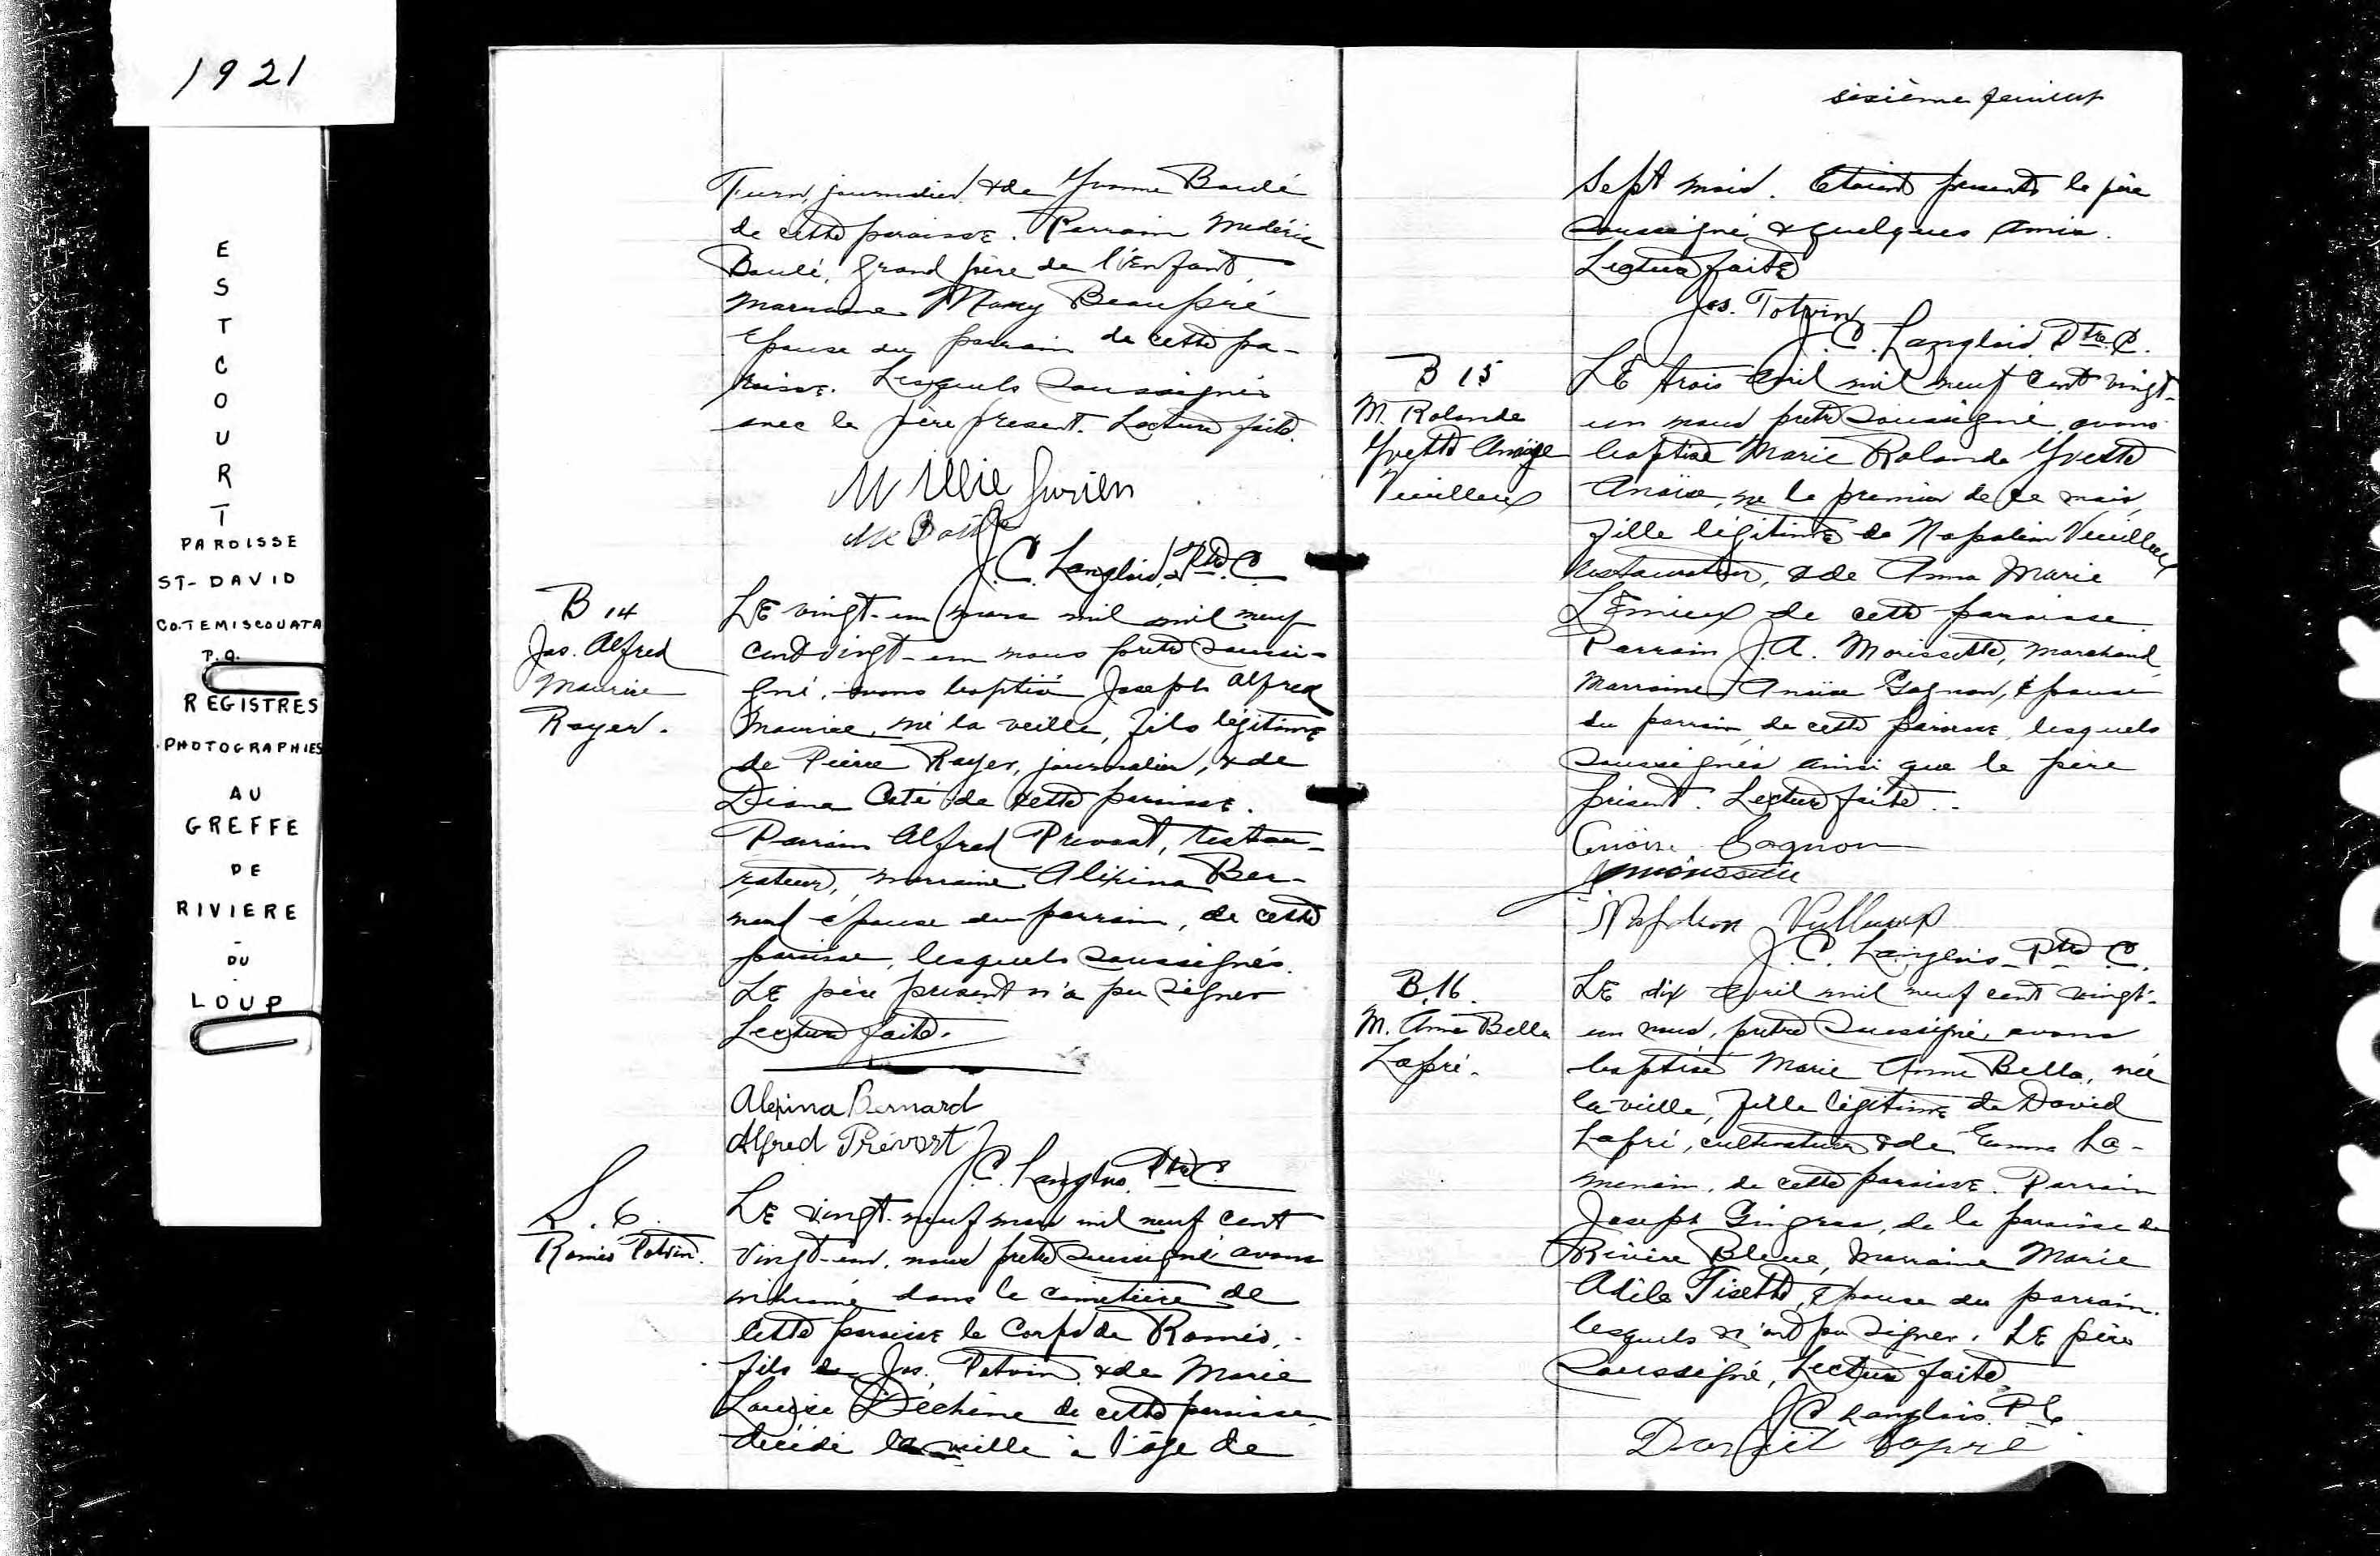 1921
E
S
T
C
O
U
R
T
PAROISSE
ST-DAVID
CO. TEMISCOUATA
P.Q.
REGISTRES
PHOTOGRAPHIES
AU
GREFFE
DE
RIVIERE
-
DU
-
LOUP
journalier & de Yvonne
de cette paroisse. Parrain Médéric
grand père de l'Enfant,
marraine Mary Beaupré
Epouse du parrain de cette pa-
roisse. Lesquels soussignés
avec le père présent. Lecture faite.
Willie
J. C. Langlois, Ptre. C.
B 14
Jos. Alfred
Maurice
Royer.
LE vingt-un mars mil mil neuf
cent vingt-un nous prêtre soussi-
gné, avons baptisé Joseph Alfred
Maurice, né la veille, fils légitime
de Pierre Royer, journalier, & de
Diana Coté de cette paroisse.
Parrain Alfred Prevost, restau-
rateur, marraine Alixina Ber-
nard épouse du parrain, de cette
paroisse, lesquels soussignés.
LE père présent n'a pu signer
Lecture faite.
Alexina Bernard
Alfred Prévost
J. C. Langlois, Ptre C.
S. 6.
Roméo Potvin.
LE vingt-neuf mars mil neuf cent
vingt-un, nous prêtre soussigné avons
inhumé dans le cimetière de
cette paroisse le corps de Roméo,
fils de Jos. Potvin & de Marie
Louise Déchène de cette paroisse,
décédé la veille à l'âge de
sixième feuillet
Sept mois. Etaient présents le père
soussigné & quelques amis.
Lecture faite
Jos. Potvin
J. C. Langlois, Ptre. C.
B 15
M. Rolande
Yvette Anaïse
Veuilleux
LE trois avril mil neuf cent vingt-
un nous prêtre soussigné, avons
baptisé Marie Rolande Yvette
Anaïse, né le premier de ce mois,
fille légitime de Napoléon Veuilleux
restaurateur, & de Anna Marie
LEmieux de cette paroisse
Parrain J. A. Morissette, marchand,
Marraine Anaïse Gagnon, épouse
du parrain, de cette paroisse, lesquels
soussignés ainsi que le père
présent. Lecture faite.
Anaïse Gagnon
Napoléon
J. C. Langlois Ptre C.
B. 16.
M. Anne Bella
Lapré.
LE dix avril mil neuf cent vingt-
un nous, prêtre soussigné, avons
baptisé Marie Anne Bella, née
la veille, fille légitime de David
Lapré, cultivateur & de Emma La-
de cette paroisse. Parrain
Joseph Gingras, de la paroisse de
Rivière Bleue, marraine Marie
Adèle Fisette, épouse du parrain.
lesquels n'ont pu signer. LE père
soussigné, Lecture faite
J C Langlois. P
Lapré